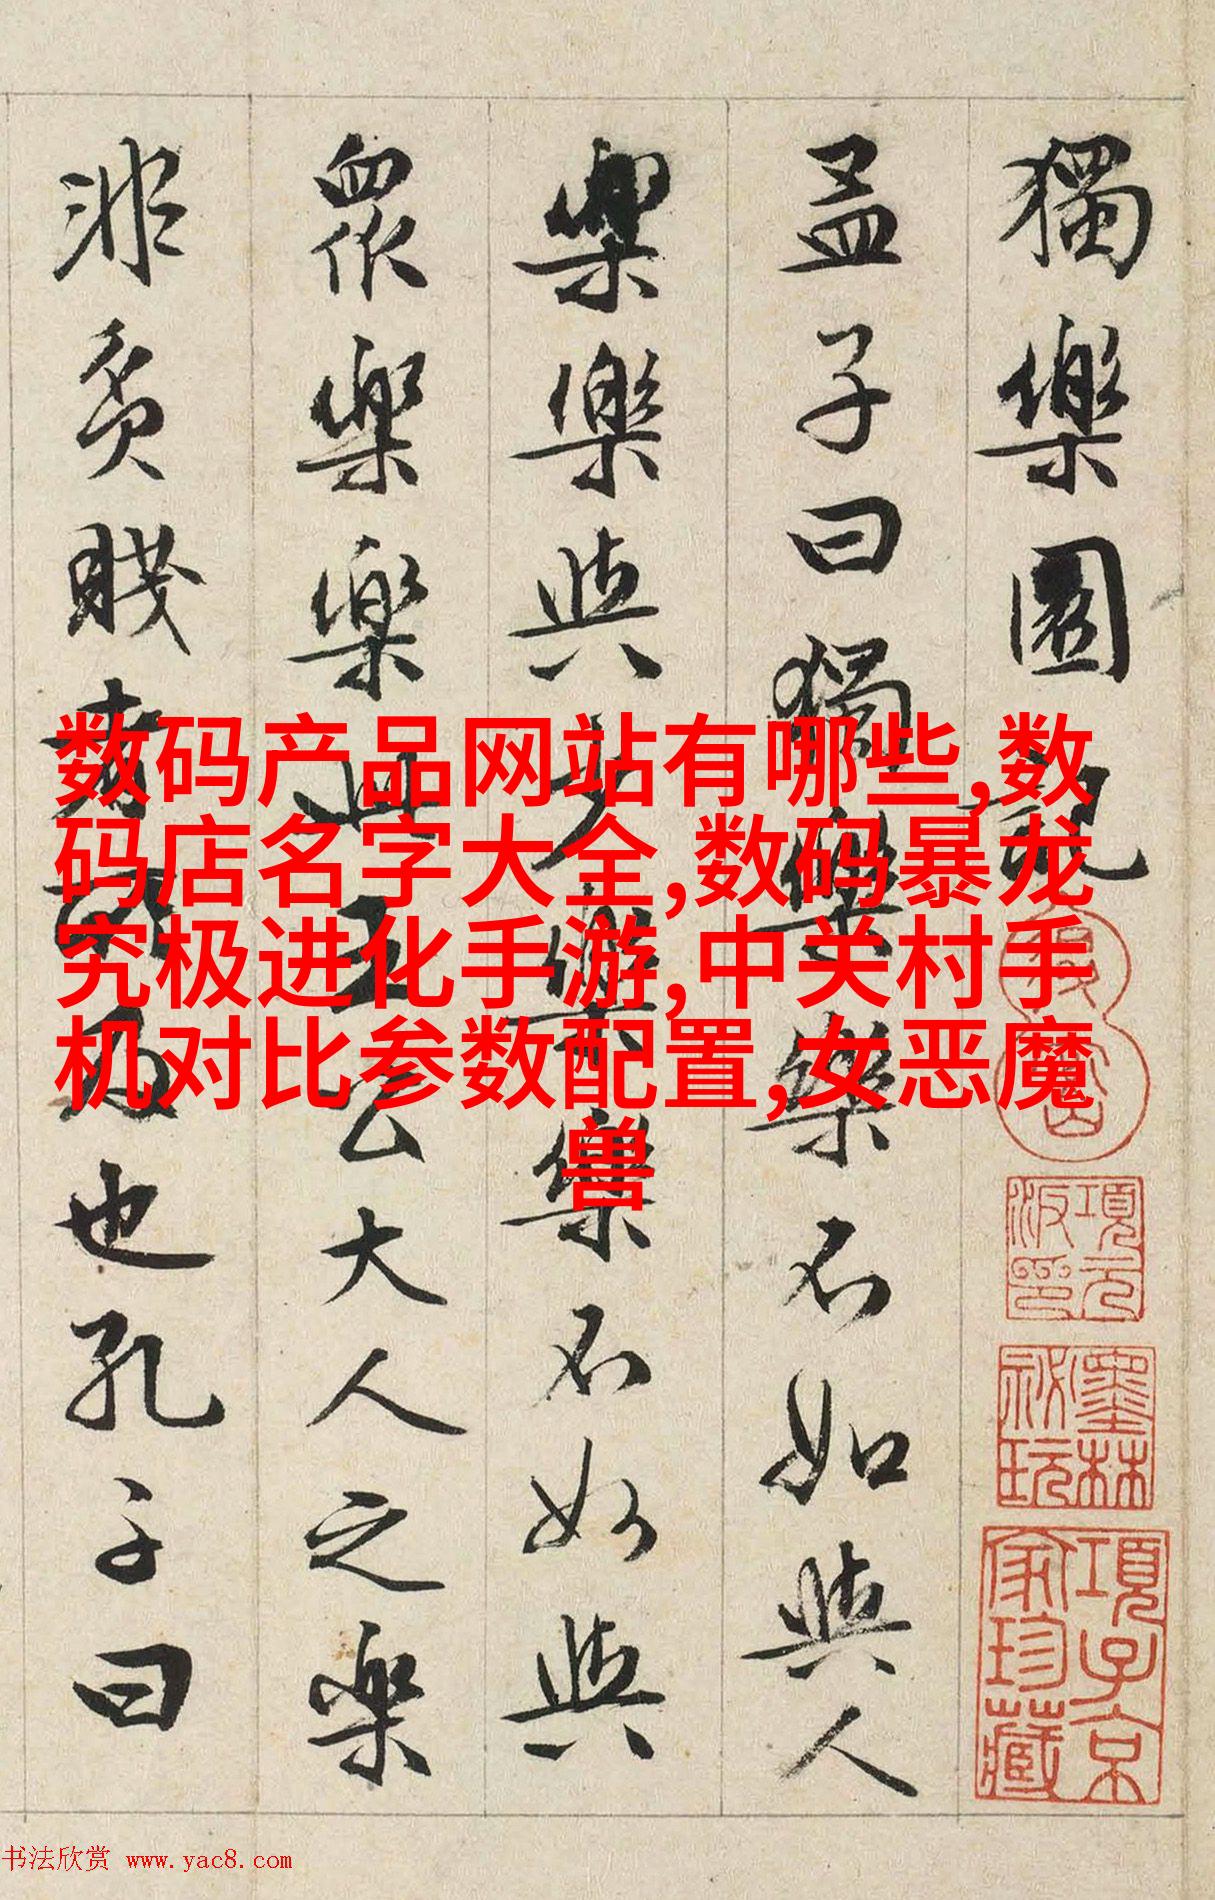 獨樂園記
孟子曰獨樂樂不如與人
樂樂與少樂樂不如與
眾樂樂此王公大人之樂
非貧賤者所及也孔子曰
数码产品网站有哪些,数
码店名字大全,数码暴龙
究极进化手游,中关村手
机对比参数配置,女恶魔
兽
項元汴印
墨林祕玩
項子京家珍藏
书法欣赏 www.yac8.com